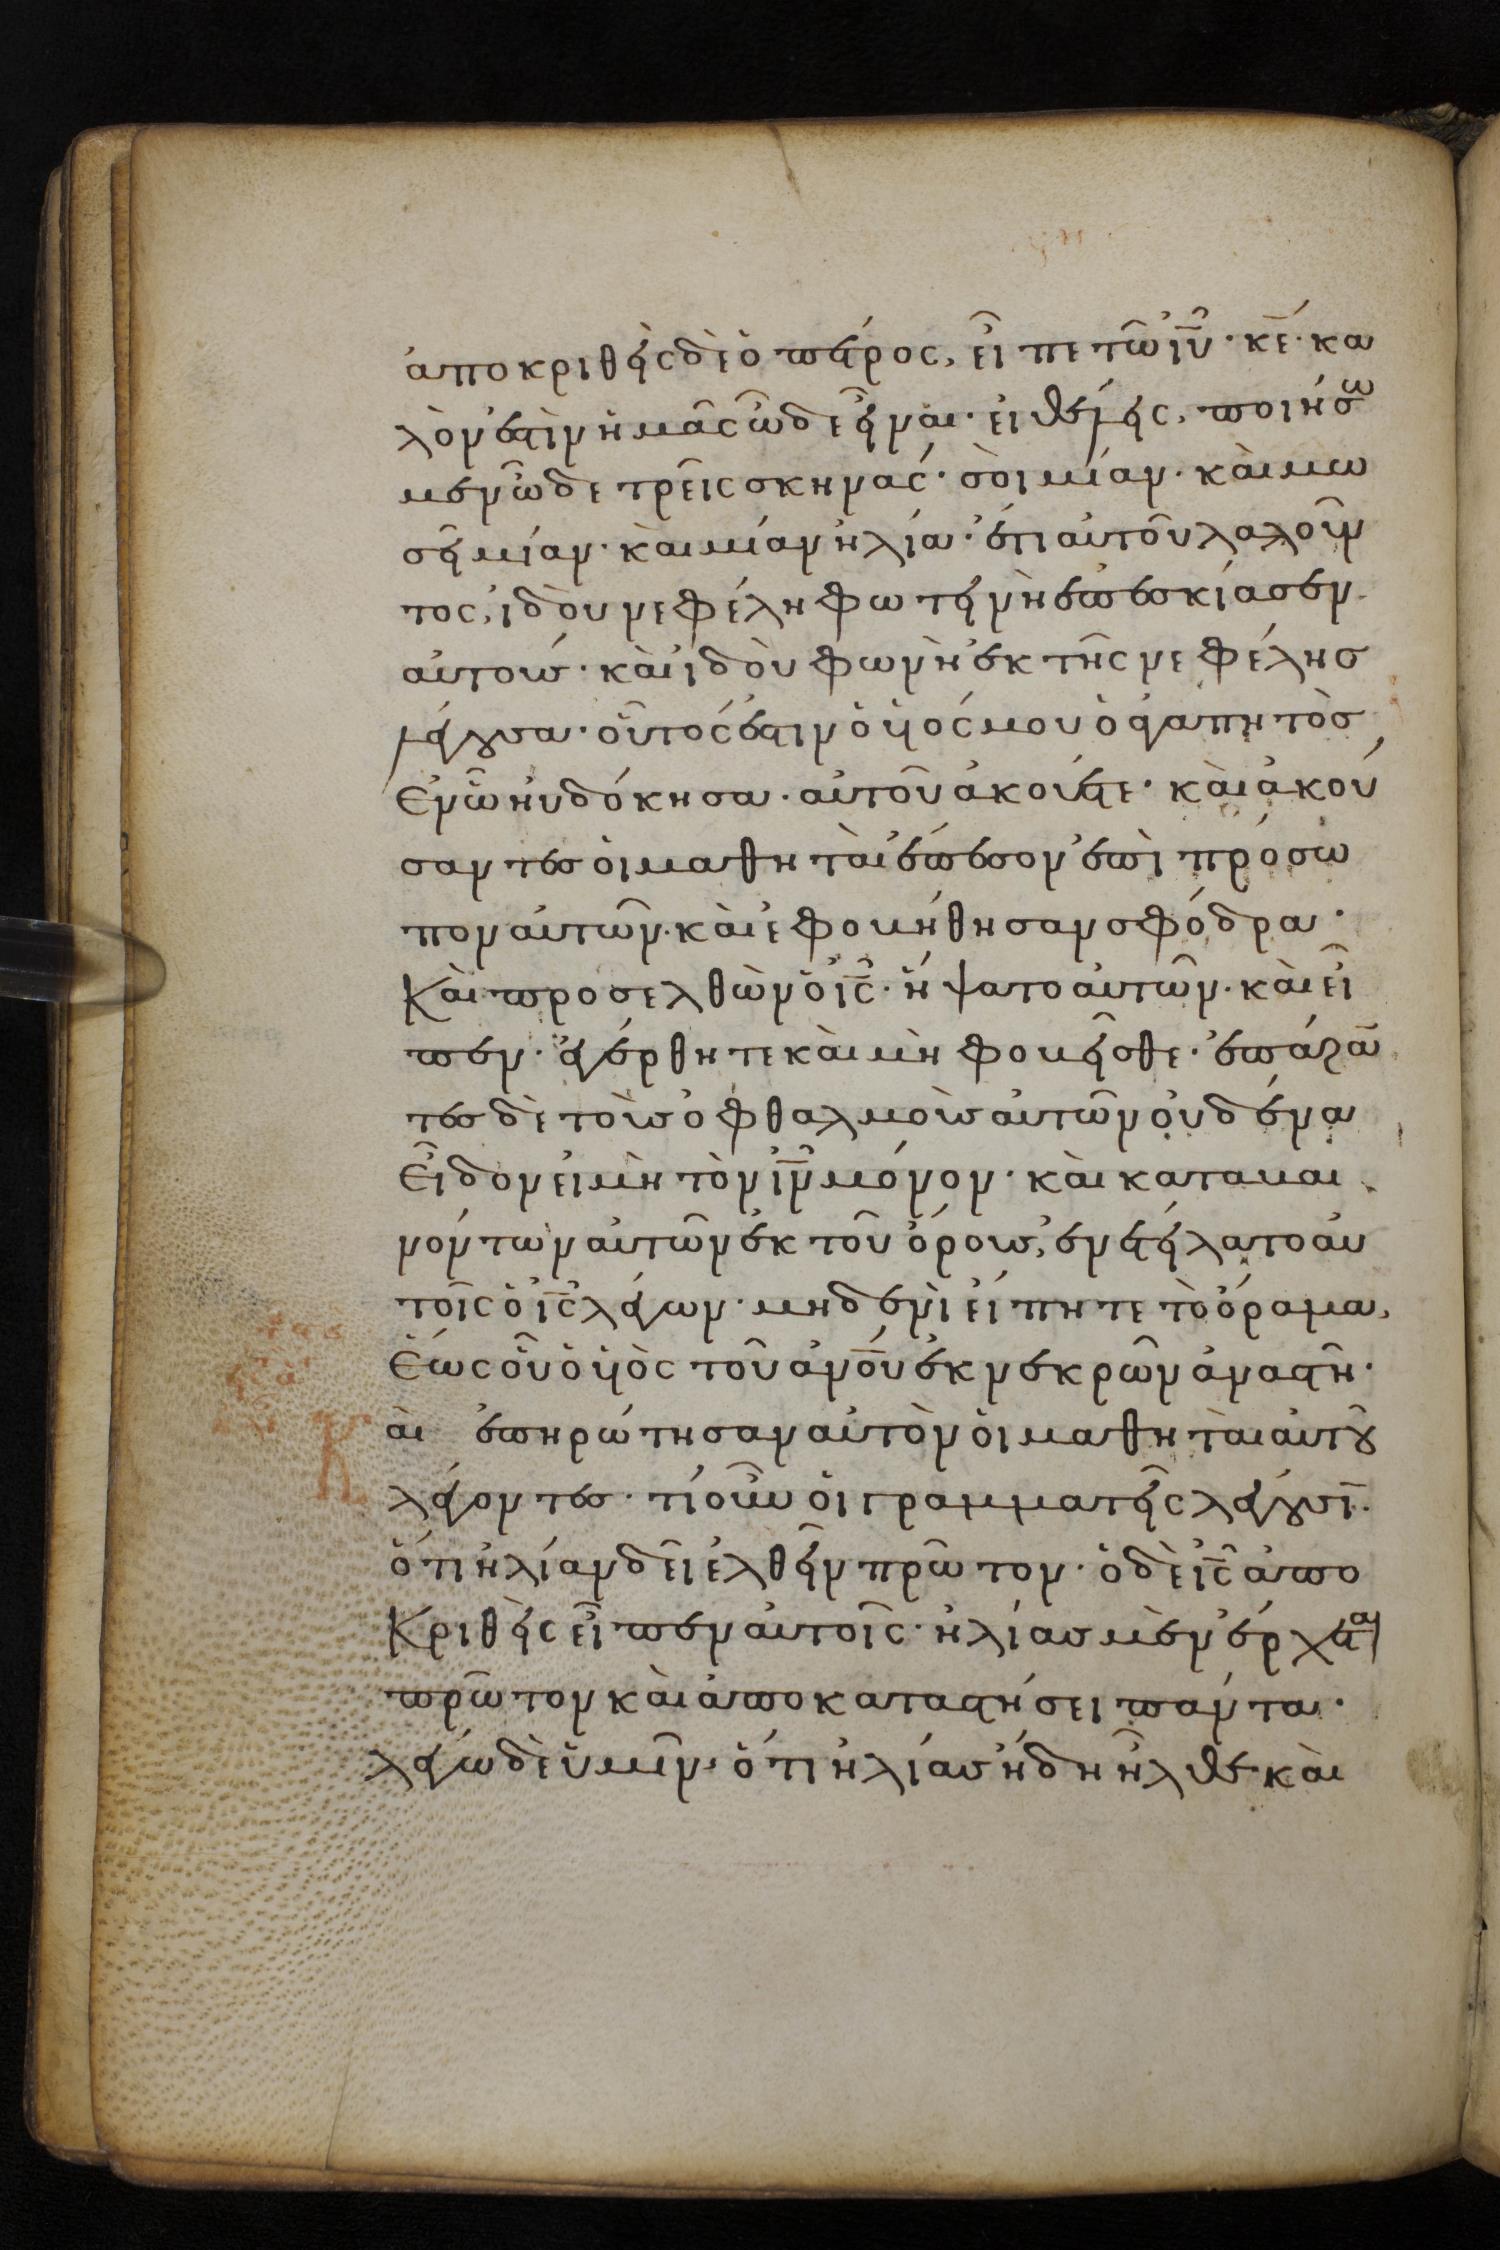 ἀποκριθεὶς δὲ ὁ πέτρος, εἶπε τῶ ἰῦ· κε̄· κα
λὸν ἐστὶν ἡμᾶς ὧδε εἶναι· εἰ θέλεις, ποιήσω
μεν ὧδε τρεῖς σκηνάς· σοὶ μίαν· καὶ μω
σεῖ μίαν· καὶ μίαν ἠλία· ἔτι αὐτοῦ λαλοῦν
τος, ἰδοὺ νεφέλη φωτεινὴ ἐπεσκίασεν
αὐτούς· καὶ ἰδοὺ φωνὴ ἐκ τῆς νεφέλησ
λέγουσα· οὗτός ἐστιν ὁ υἱός μου ὁ ἀγαπητὸσ
ἐν ὧ ηὐδόκησα· αὐτοῦ ἀκούετε· καὶ ἀκού
σαντες οἱ μαθηταὶ ἔπεσον ἐπὶ πρόσω
πον αὐτῶν· καὶ ἐφοβήθησαν σφόδρα·
Καὶ προσελθὼν ὁ ἰς̄· ἥψατο αὐτῶν· καὶ εἶ
πεν· ἐγέρθητε καὶ μὴ φοβεῖσθε· ἐπάραν
τες δὲ τοὺς ὀφθαλμοὺς αὐτῶν οὐδένα
εἶδον εἰ μὴ τὸν ἰν̄ μόνον· καὶ καταβαι
νόντων αὐτῶν ἐκ τοῦ ὄρους, ἐνετείλατο αὐ
τοῖς ὁ ἰς̄ λέγων· μηδενὶ εἴπητε τὸ ὅραμα,
ἕως οὗ ὁ υἱὸς τοῦ ἀνο̄υ ἐκ νεκρῶν ἀναστῆ·
Καὶ ἐπηρώτησαν αὐτὸν οἱ μαθηταὶ αὐτοῦ
λέγοντες· τί οὖν οἱ γραμματεῖς λέγουσῑ·
ὅτι ἠλίαν δεῖ ἐλθεῖν πρῶτον· ὁ δὲ ἰς̄ ἀπο
Κριθεὶς εἶπεν αὐτοῖς· ἠλίας μὲν ἔρχεται
πρῶτον καὶ ἀποκαταστήσει πάντα·
λέγω δὲ ὑμῖν· ὅτι ἠλίας ἤδη ἦλθε· καὶ